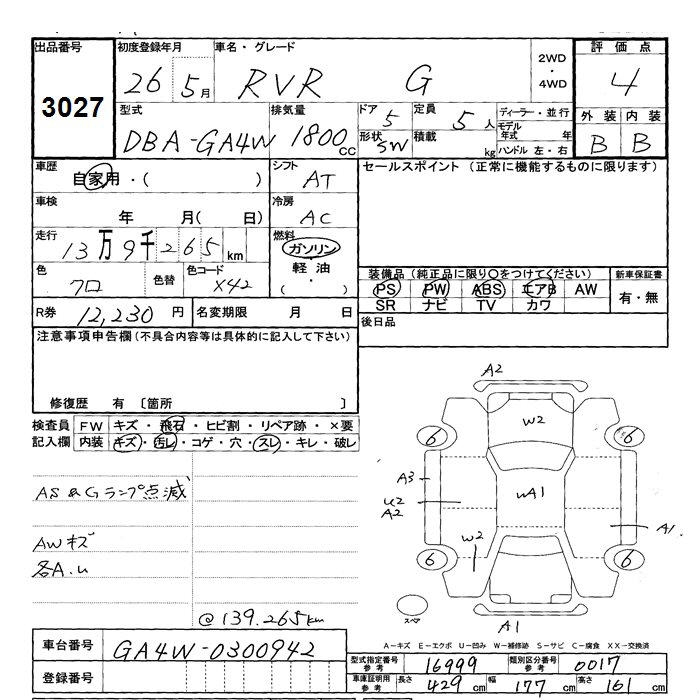 出品番号 初度登録年月 車名・グレード 評価点
3027 26 5月 RVR G 2WD・4WD 4
型式 排気量 ドア 定員 ディーラー・並行 外装 内装
DBA-GA4W 1800cc 5 5人 モデル年式 年 B B
形状 積載
5W kg ハンドル 左・右
車歴 シフト セールスポイント (正常に機能するものに限ります)
自家用・( ) AT
車検 冷房
年 月( 日) AC
走行 燃料
13万9千265km ガソリン・軽油・( )
色 色替 色コード 装備品(純正品に限り○をつけてください) 新車保証書
クロ X42 PS PW ABS エアB AW 有・無
SR ナビ TV カワ
R券 12,230円 名変期限 月 日 後日品
注意事項申告欄(不具合内容等は具体的に記入して下さい)
修復歴 有 〔箇所 〕
検査員 FW キズ・飛石・ヒビ割・リペア跡・×要
記入欄 内装 キズ・汚レ・コゲ・穴・スレ・キレ・破レ
AS&Gランプ点滅
AWキズ
各A.U
@139.265km
A2
W2
6 6
A3
U2 A2
WA1
W2
A1.
6 6
スペア
A1
A－キズ E－エクボ U－凹み W－補修跡 S－サビ C－腐食 XX－交換済
車台番号 GA4W-0300942
登録番号
型式指定番号参考 16999 類別区分番号参考 0017
車庫証明用参考 長さ 429cm 幅 177cm 高さ 161cm